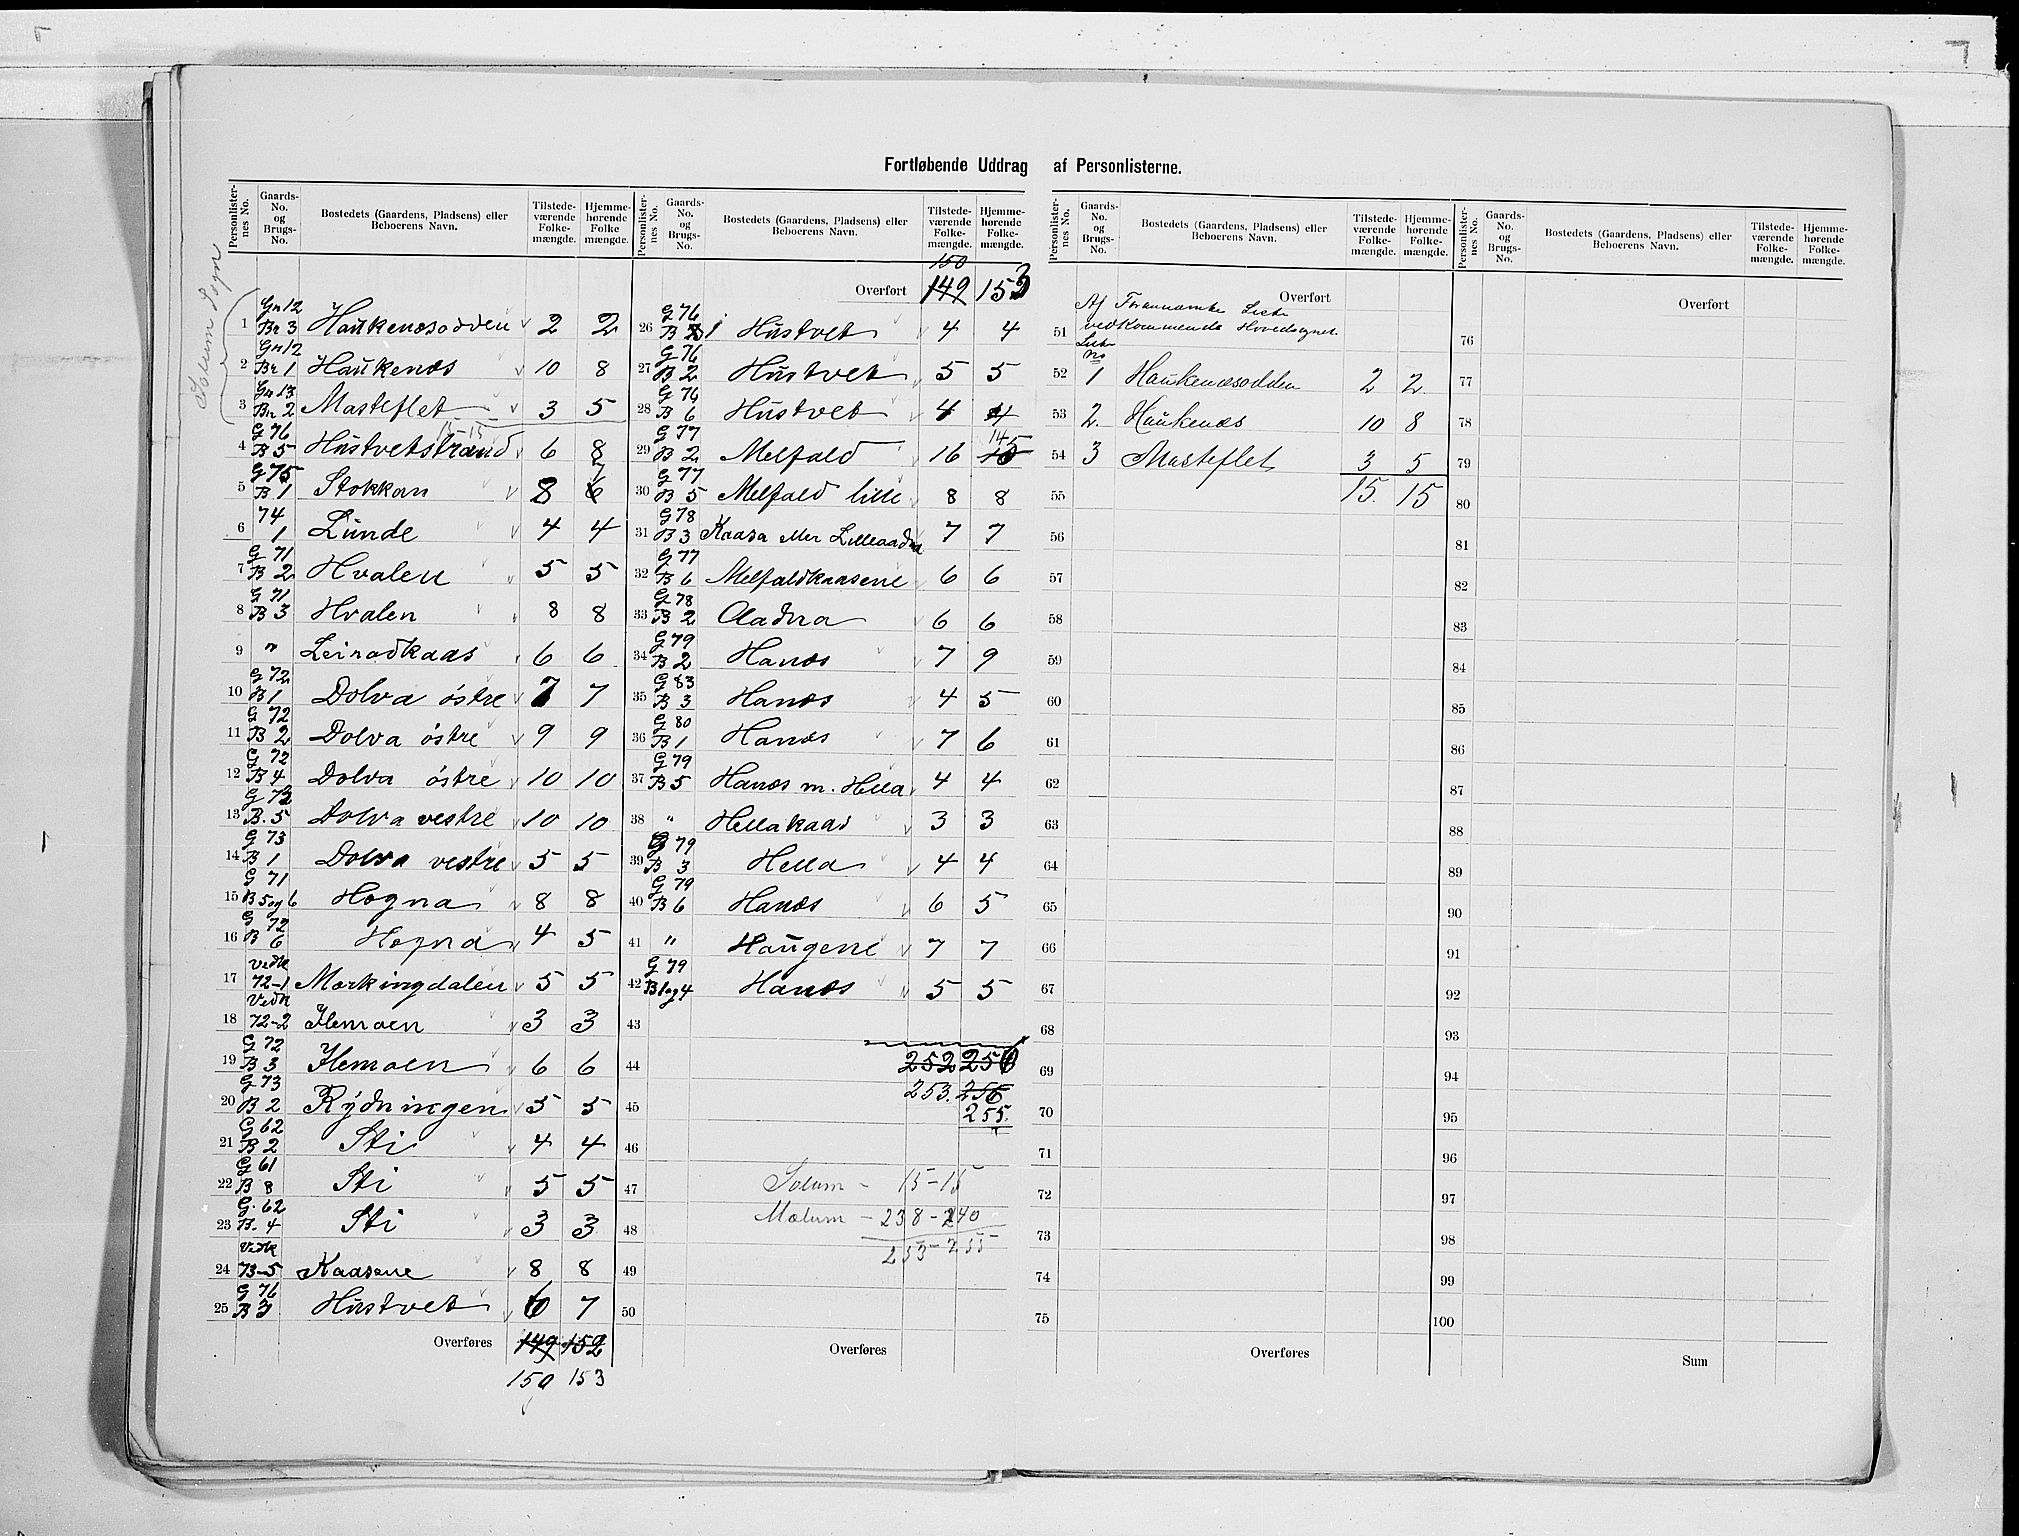 Fortløbende Uddrag af Personlisterne.
Personlister-nes No. Gaards-No. og Brugs-No. Bostedets (Gaardens, Pladsens) eller Beboerens Navn. Tilstede-værende Folke-mængde. Hjemme-hørende Folke mængde.
Solum Sogn
1 Gn 12 Br 3 Haukenæsodden 2 2
2 Gn 12 Br 1 Haukenæs 10 8
3 Gn 13 Bn 2 Masteflet 3 5
15-15
4 G 76 B 5 Hustvetstrand 6 8
5 G 75 B 1 Stokkan 8 6 7
6 74 1 Lunde 4 4
7 G 71 B 2 Hvalen 5 5
8 G 71 B 3 Hvalen 8 8
9 " Leirodkaas 6 6
10 G 72 B 1 Dolva östre 7 7
11 G 72 B 2 Dolva östre 9 9
12 G 72 B 4 Dolva östre 10 10
13 G 72 B. 5 Dolva vestre 10 10
14 G 73 B 1 Dolva vestre 5 5
15 G 71 B 5 og 6 Hogna 8 8
16 G 72 B 6 Hogna 4 5
17 Vedk 72-1 Morkingdalen 5 5
18 Vedk 72-2 Hemoen 3 3
19 G 72 B 3 Hemoen 6 6
20 G 73 B 2 Rydningen 5 5
21 G 62 B 2 Sti 4 4
22 G 61 B 8 Sti 5 5
23 G. 62 B. 4 Sti 3 3
24 Vedk 73-5 Kaasene 8 8
25 G 76 B 3 Hustvet 6 7
Overføres 149 152
150 153
Personlister-nes No. Gaards-No. og Brugs-No. Bostedets (Gaardens, Pladsens) eller Beboerens Navn. Tilstede-værende Folke-mængde. Hjemme-hørende Folke-mængde.
150
Overført 149 153
26 G 76 B 1 Hustvet 4 4
27 G 76 B 2 Hustvet 5 5
28 G 76 B 6 Hustvet 4 4
29 G 77 B 2 Melfald 16 15 14
30 G 77 B 5 Melfald lille 8 8
31 G 78 B 3 Kaasa eller Lilleaadna 7 7
32 G 77 B 6 Melfaldkaasene 6 6
33 G 78 B 2 Aadna 6 6
34 G 79 B 2 Hanæs 7 9
35 G 83 B 3 Hanæs 4 5
36 G 80 B 1 Hanæs 7 6
37 G 79 B 5 Hanæs m. Hella 4 4
38 " Hellakaas 3 3
39 G 79 B 3 Hella 4 4
40 G 79 B 6 Hanæs 6 5
41 " Haugene 7 7
42 G 79 B 1 og 4 Hanæs 5 5
43
44 252 256
45 253. 256
255.
46
47 Solum - 15-15
48 Mælum - 238-240
253-255
49
50
Overføres
Personlister-nes No. Gaards-No. og Brugs-No. Bostedets (Gaardens, Pladsens) eller Beboerens Navn. Tilstede-værende Folke-mængde. Hjemme-hørende Folke-mængde.
Overført
Af Forannævnte Lister
51 vedkommende Hovedsognet
Liste No
52 1 Haukenæsodden 2 2
53 2. Haukenæs 10 8
54 3 Masteflet 3 5
55 15. 15
56
57
58
59
60
61
62
63
64
65
66
67
68
69
70
71
72
73
74
75
Overføres
Personlister-nes No. Gaards-No. og Brugs-No. Bostedets (Gaardens, Pladsens) eller Beboerens Navn. Tilstede-værende Folke-mængde. Hjemme-hørende Folke-mængde.
Overført
76
77
78
79
80
81
82
83
84
85
86
87
88
89
90
91
92
93
94
95
96
97
98
99
100
Sum